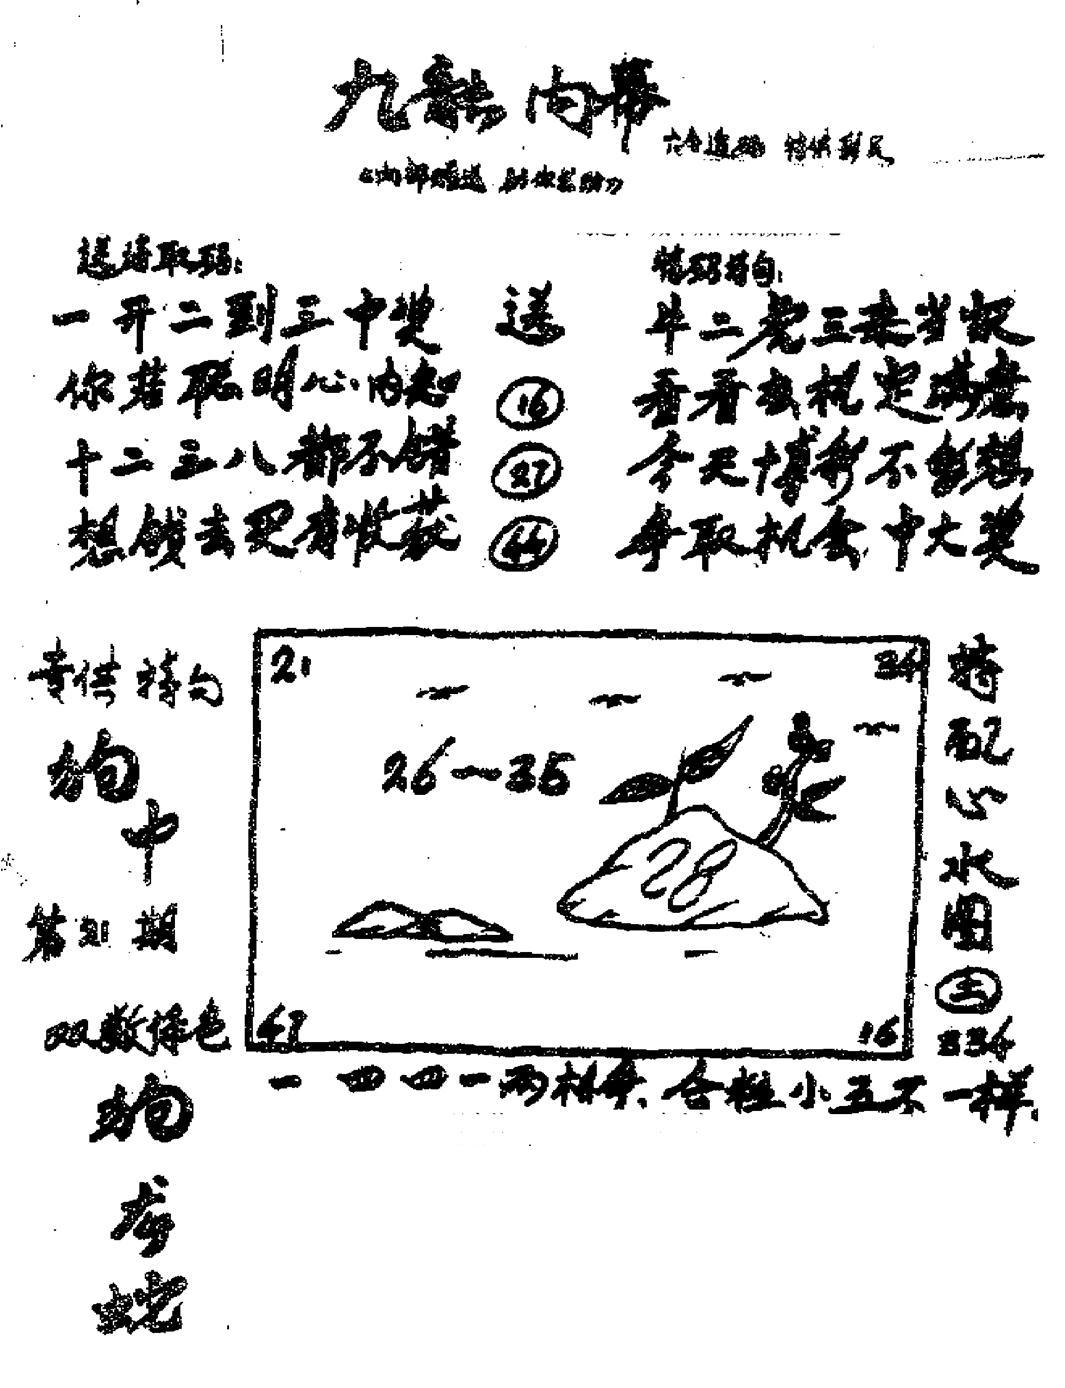 九龍内幕
六合透码 特供彩民
送诗取码:
一开二到三中奖
你若聪明心内知
十二三八都不错
想钱去买有收获
送
16
27
44
特码诗句:
牛二虎三来当权
看看玄机定满意
今天博彩不乱想
争取机会中大奖
专供特勾
狗
中
第21期
双数绿色
狗
龙
蛇
21
34
26—35
28
47
16
特配心水图
主
334
一四四一两相争.合粒小五不一样.